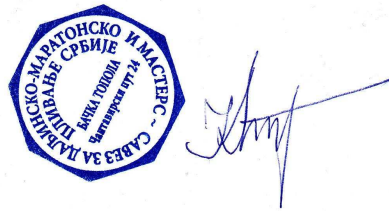 САВЕЗ ЗА ДАЉИНСКО-МАРАТОНСКО И МАСТЕРС ~
ПЛИВАЊЕ СРБИЈЕ
БАЧКА ТОПОЛА
Чантавирски пут 24